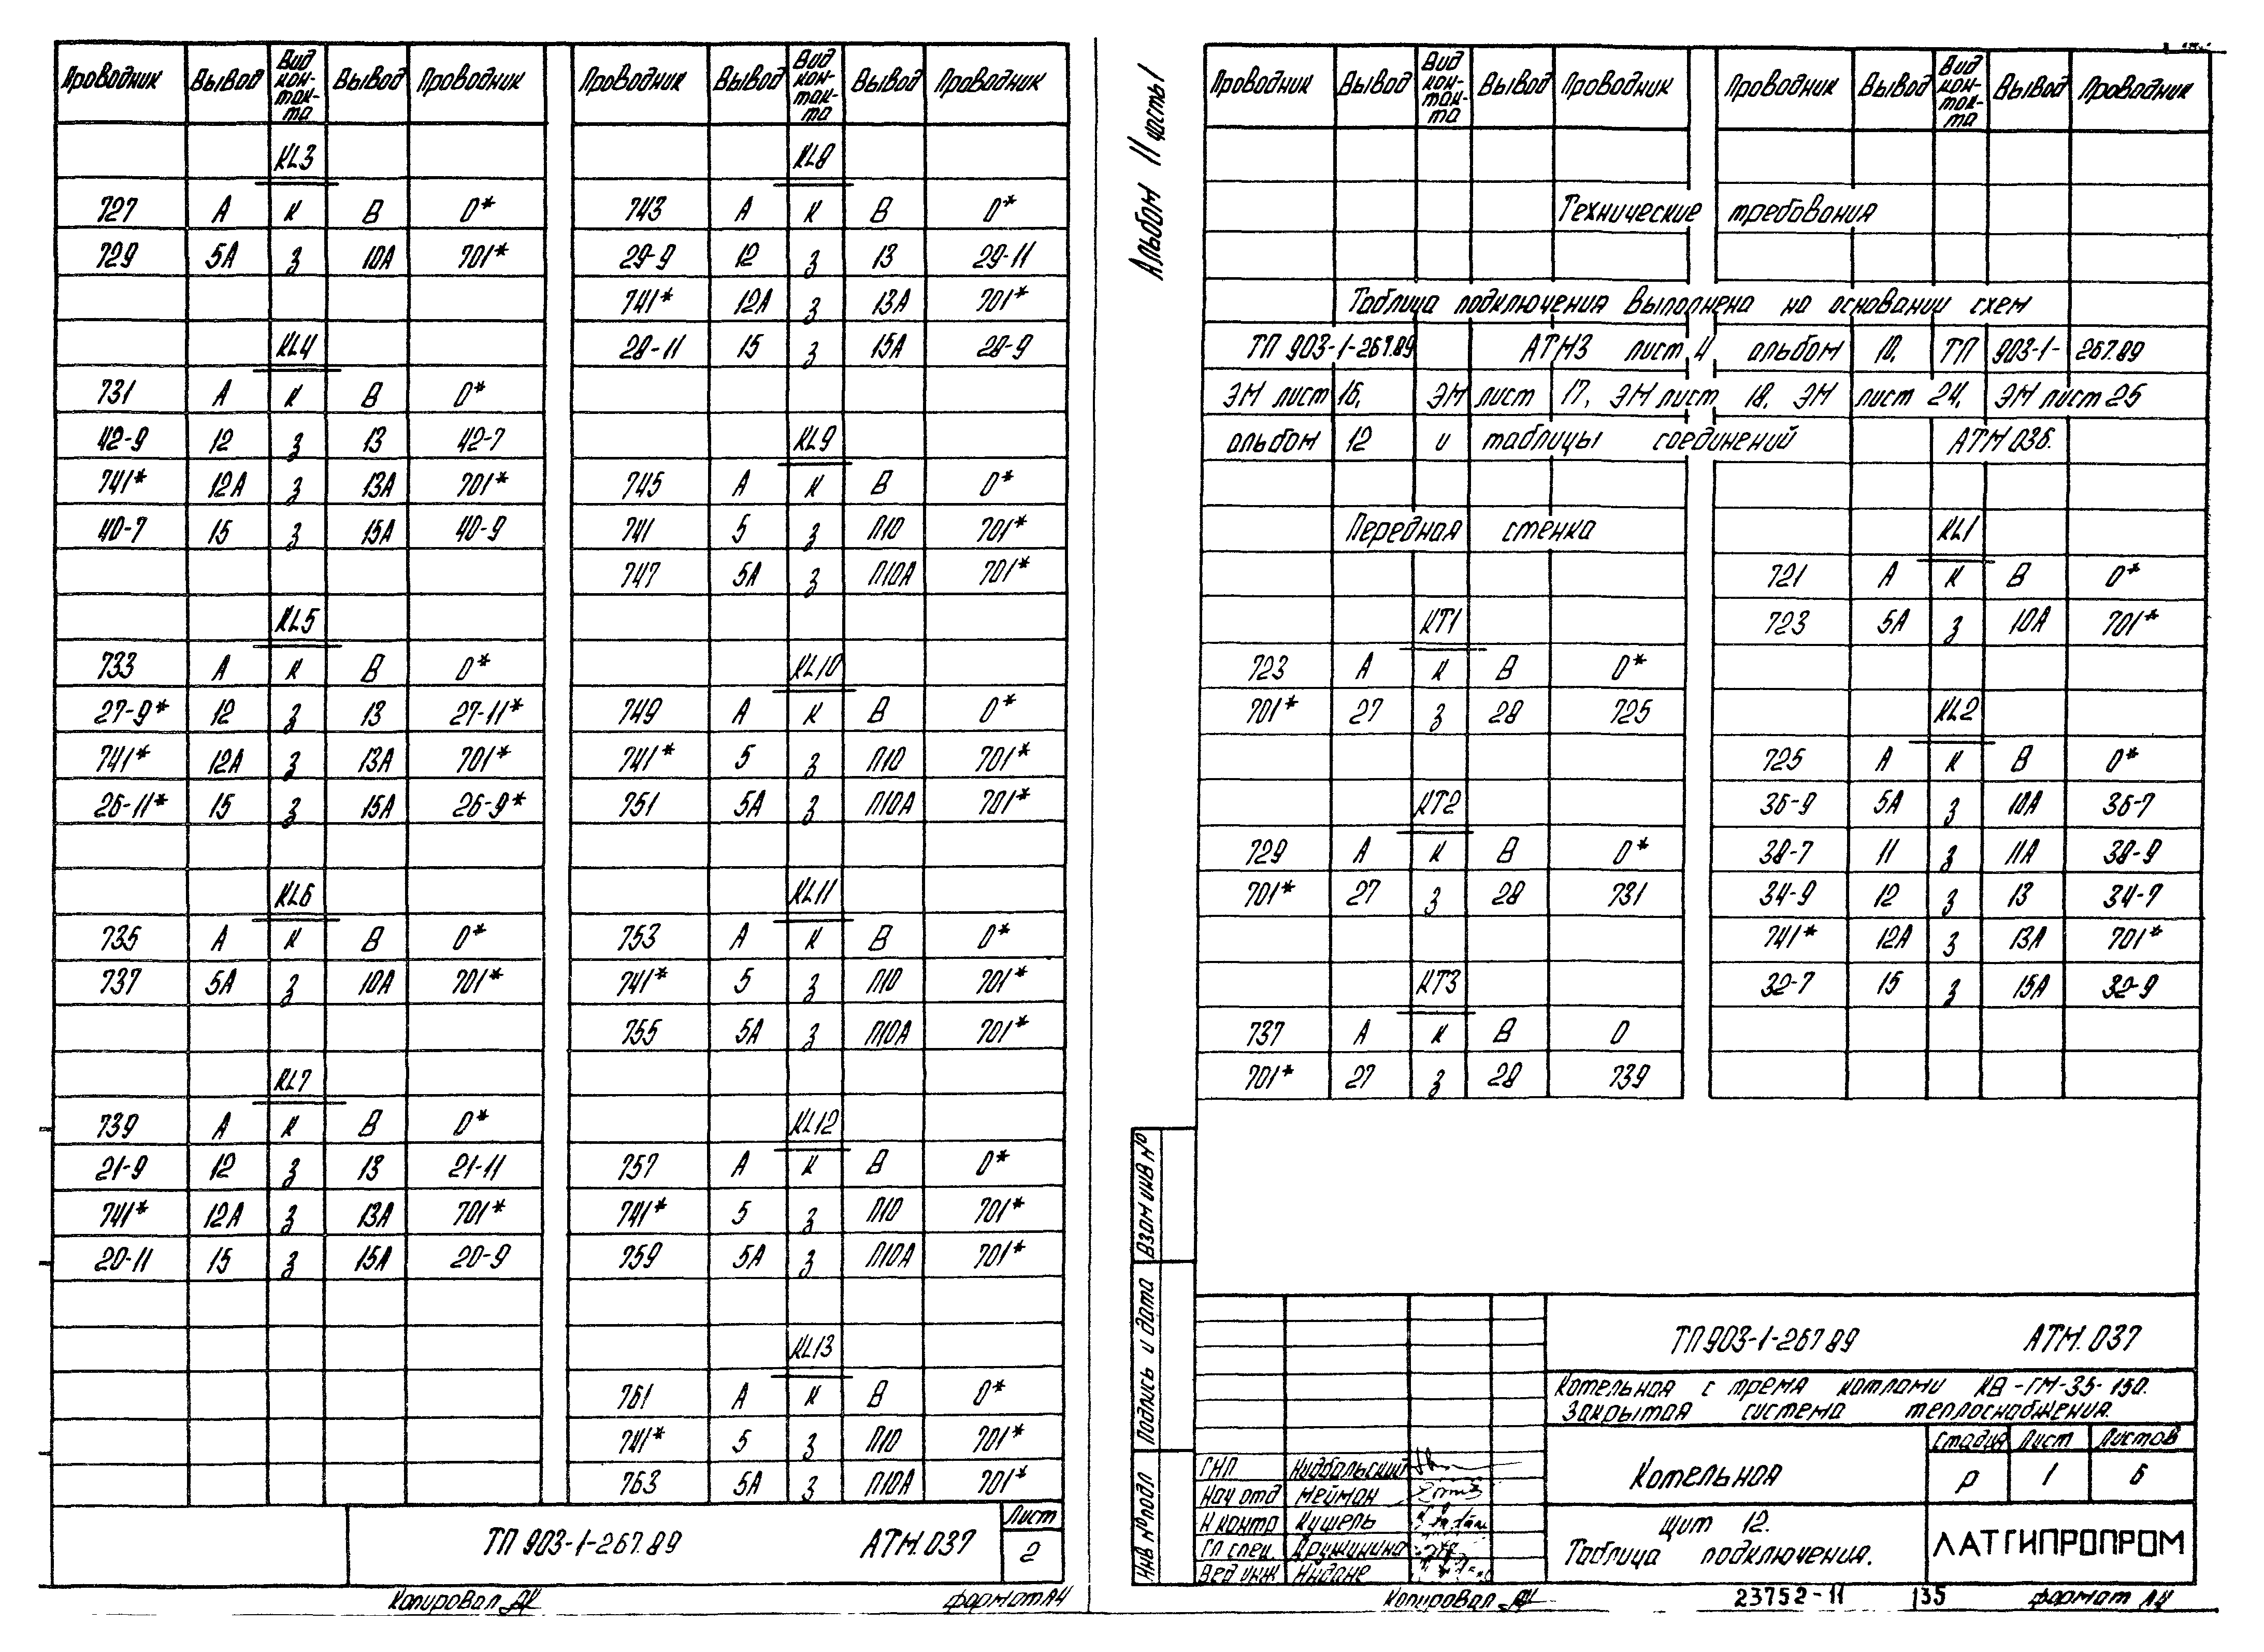 Проводник Вывод Вид кон-так-та Вывод Проводник
KL3
727 А К В 0*
729 5А З 10А 701*
KL4
731 А К В 0*
42-9 12 З 13 42-7
741* 12А З 13А 701*
40-7 15 З 15А 40-9
KL5
733 А К В 0*
27-9* 12 З 13 27-11*
741* 12А З 13А 701*
26-11* 15 З 15А 26-9*
KL6
735 А К В 0*
737 5А З 10А 701*
KL7
739 А К В 0*
21-9 12 З 13 21-11
741* 12А З 13А 701*
20-11 15 З 15А 20-9
Проводник Вывод Вид кон-так-та Вывод Проводник
KL8
743 А К В 0*
29-9 12 З 13 29-11
741* 12А З 13А 701*
28-11 15 З 15А 28-9
KL9
745 А К В 0*
741 5 З П10 701*
747 5А З П10А 701*
KL10
749 А К В 0*
741* 5 З П10 701*
751 5А З П10А 701*
KL11
753 А К В 0*
741* 5 З П10 701*
755 5А З П10А 701*
KL12
757 А К В 0*
741* 5 З П10 701*
759 5А З П10А 701*
KL13
761 А К В 0*
741* 5 З П10 701*
763 5А З П10А 701*
ТП 903-1-267.89 АТМ.037
Лист
2
Копировал
формат А4
Альбом 11 часть 1
Проводник Вывод Вид кон-так-та Вывод Проводник
Проводник Вывод Вид кон-так-та Вывод Проводник
Технические требования
Таблица подключения выполнена на основании схем
ТП 903-1-267.89 АТМ3 лист 4 альбом 10, ТП 903-1-267.89
ЭМ лист 16, ЭМ лист 17, ЭМ лист 18, ЭМ лист 24, ЭМ лист 25
альбом 12 и таблицы соединений АТМ.036.
Передная стенка
KT1
723 А К В 0*
701* 27 З 28 725
KT2
729 А К В 0*
701* 27 З 28 731
KT3
737 А К В 0
701* 27 З 28 739
KL1
721 А К В 0*
723 5А З 10А 701*
KL2
725 А К В 0*
36-9 5А З 10А 36-7
38-7 11 З 11А 38-9
34-9 12 З 13 34-7
741* 12А З 13А 701*
32-7 15 З 15А 32-9
Взам инв №
Подпись и дата
Инв № подл
ТП 903-1-267.89 АТМ.037
Котельная с тремя котлами КВ-ГМ-35-150.
Закрытая система теплоснабжения.
Котельная
Стадия Лист Листов
Р 1 6
Щит 12.
Таблица подключения.
ЛАТГИПРОПРОМ
ГИП Нидбальский
Нач отд Мейман
Н контр Кушель
Гл спец. Дружинина
Вед инж Индане
Копировал
23752-11 135
формат А4